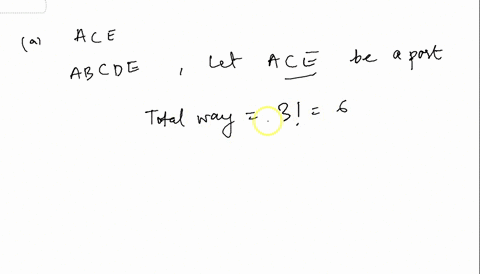 (a) ACE
ABCDE , Let ACE be a part
Total way = 3! = 6